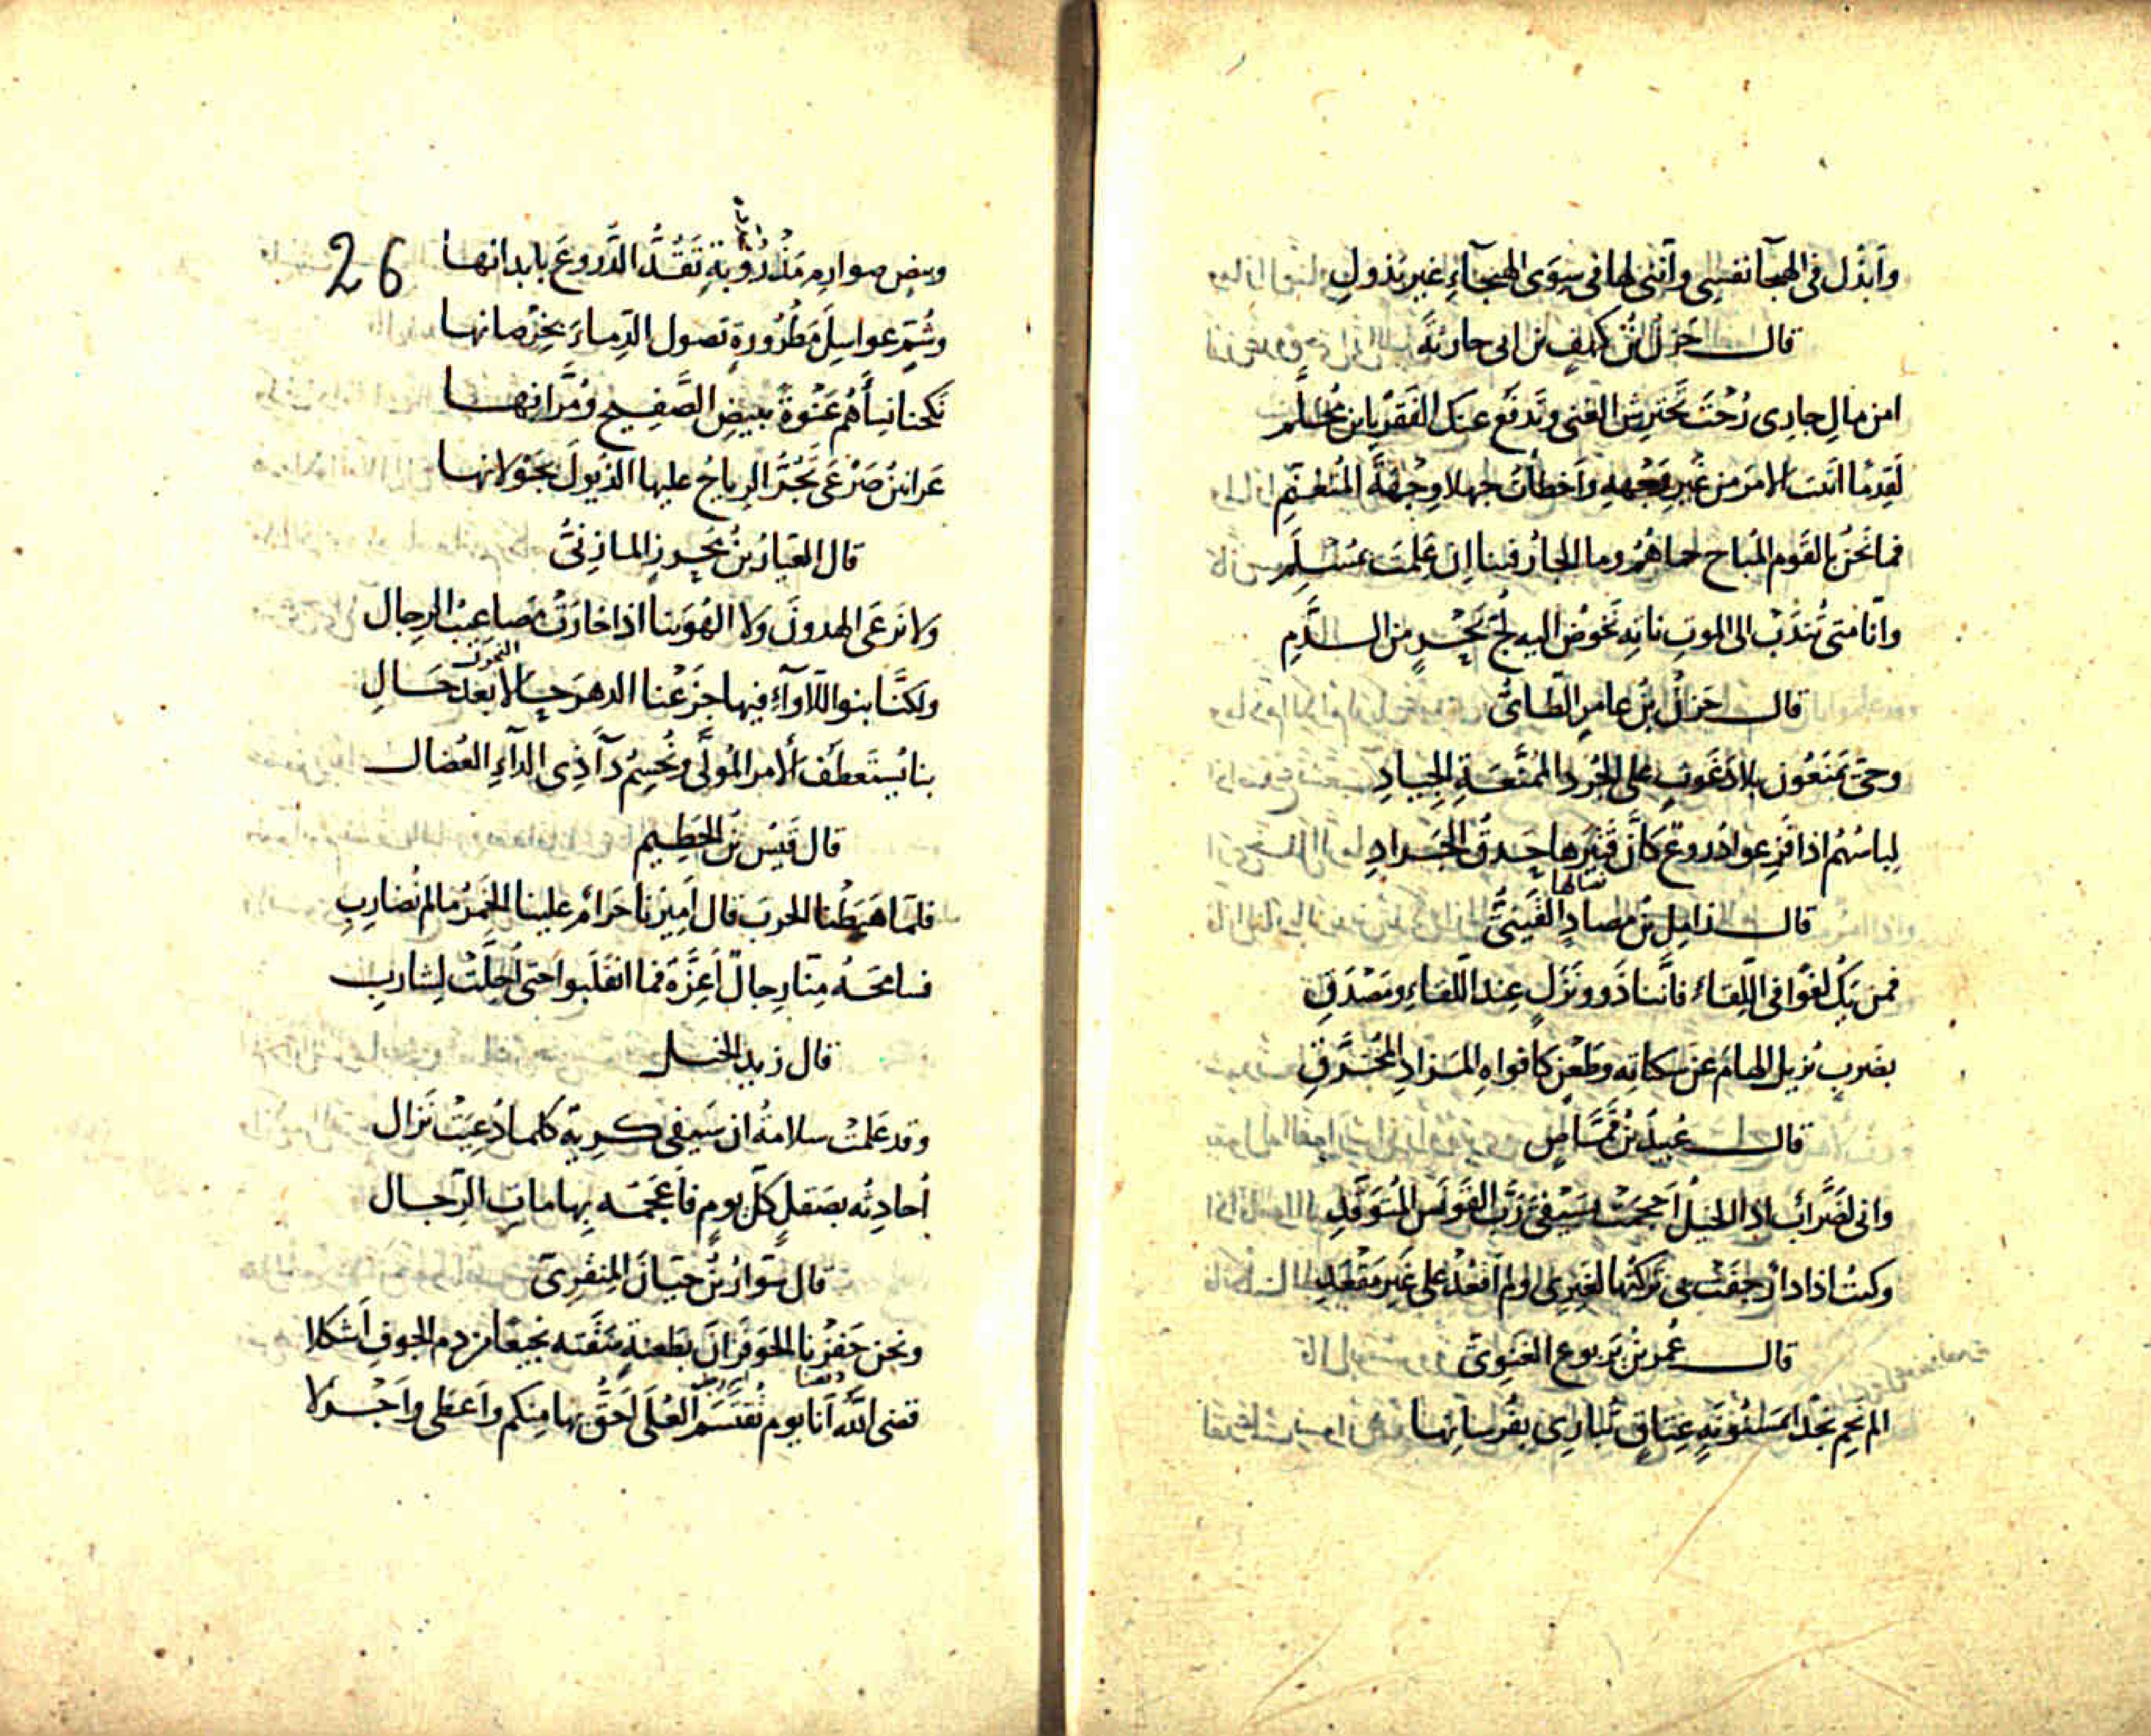 وَابْذُل فى الهيجآ نفسى وانّنى لها فى سِوَى الهيجآءِ غير بَذولِ
قال خَزلُ بْنُ كهف بن ابى حارثةَ
امن مال جارى رُحْتَ تحترش الغنى وتَدفَع عنك الفَقرَ يا بن مُحَلِّمِ
لَقِدْمًا اتيتَ الامر من غيرِ وجهه وأخطأتَ جهلا وِجْهَةَ المُتَغَنِّمِ
فما نحنُ بالقَوم المُباح حماهُمُ وما الجارُ فينا ان عَلِمتَ بمُسْلَمِ
وانّا متى نُندَبْ الى الموتِ ناتِهِ نخوضُ اليه لُجَّ بَحْرٍ من الدَّمِ
قال خَزلُ بْنُ عامِرٍ الطّائىُّ
وحىّ يَمنَعُون بلادَ غَوثٍ على الجُرد الممنَّعَةِ الجِيادِ
لِباسُهُم اذا فَزِعوا دُروعٌ كأنّ قَتِيرَها حَدقُ الجَرادِ
قال زامِل بْنُ مصادٍ القَينىُّ
فمن يَكُ لغوًا فى اللِّقاء فانّنا ذَوو نَزَلٍ عند اللّقاءِ ومَصْدَقِ
بضَربٍ نزيل الهامَ عن سكناتِه وطَعْنٍ كافواهِ المَزادِ المُخَرَّقِ
قال عُبيدُ بْنُ قمَّاصٍ
وانى لضَرَّابٌ اذا الخيلُ احجمَت بسَيفىَ رَبَّ القَونَس المُتَوقِّدِ
وكنتُ اذا دارٌ جفَتْ بى تركتُها لغيرى ولم اقعُدْ على غَيرِ مَقْعَدِ
قال عُمر بْنُ يَربوع الغَنَوِىُّ
الم نحمِ نجدًا بمَلمُومَةٍ عِتاقٍ تُبارِى بفُرسانِها
26
وبيض صوارِمِ مَذْرُوبةٍ تَقُدُّ الدُّروعَ بابدانها
وسُمرٍ عواسِلَ مَطْرُورةٍ تصول الدِماءَ بخِرْصانها
نَكحنا نسأَهُم عَنْوةً ببيضِ الصَّفِيحِ ومُرّانها
عَرانينُ صَرْعَى تَجُرُّ الرِياحُ عليها الذُيولَ بجَوْلانها
قال العَيّارُ بنُ مُحرِزٍ المازِنىُّ
ولا نَرعَى الهدونَ ولا الهُوَينا اذا خارَتْ مَصاعِيبُ الرِجال
ولكنَّا بنو اللاوآءِ فيها جَزَعْنا الدهرَ حالا بعدَ حَالِ
بنا يُستَعطَفُ الامر المُولَّى ونُحسِمُ دآءَ ذى الدآءِ العُضال
قال قَيْس بْنُ الخَطِيم
فلمّا هَبَطْنا الحربَ قال اَميرُنا حَرامٌ علينا الخَمرُ مالم نُضارِبِ
فسامَحَهُ مِنّا رِجالٌ اَعِزَّةٌ فما انقَلَبوا حتى اُحِلَّتْ لِشارِبِ
قال زيد الخيل
وقد عَلمَتْ سلامةُ ان سَيفى كريهٌ كلما دُعِيَتْ نَزال
اُحادِثُه بصَقلٍ كلَّ يومٍ فاَعْجُمُه بِهاماتِ الرِّجال
قال سَوّارُ بْنُ حيّانَ المِنقَرِىّ
ونحن حَفَزْنا الحَوفَزانَ بطَعنةٍ سَقَته نجيعًا من دم الجوفِ اَشكلا
قضى اللّه اَنّا يوم نُقتَسَم العُلَى اَحَقُّ بها مِنكم واَعطَى واَجْزَلا